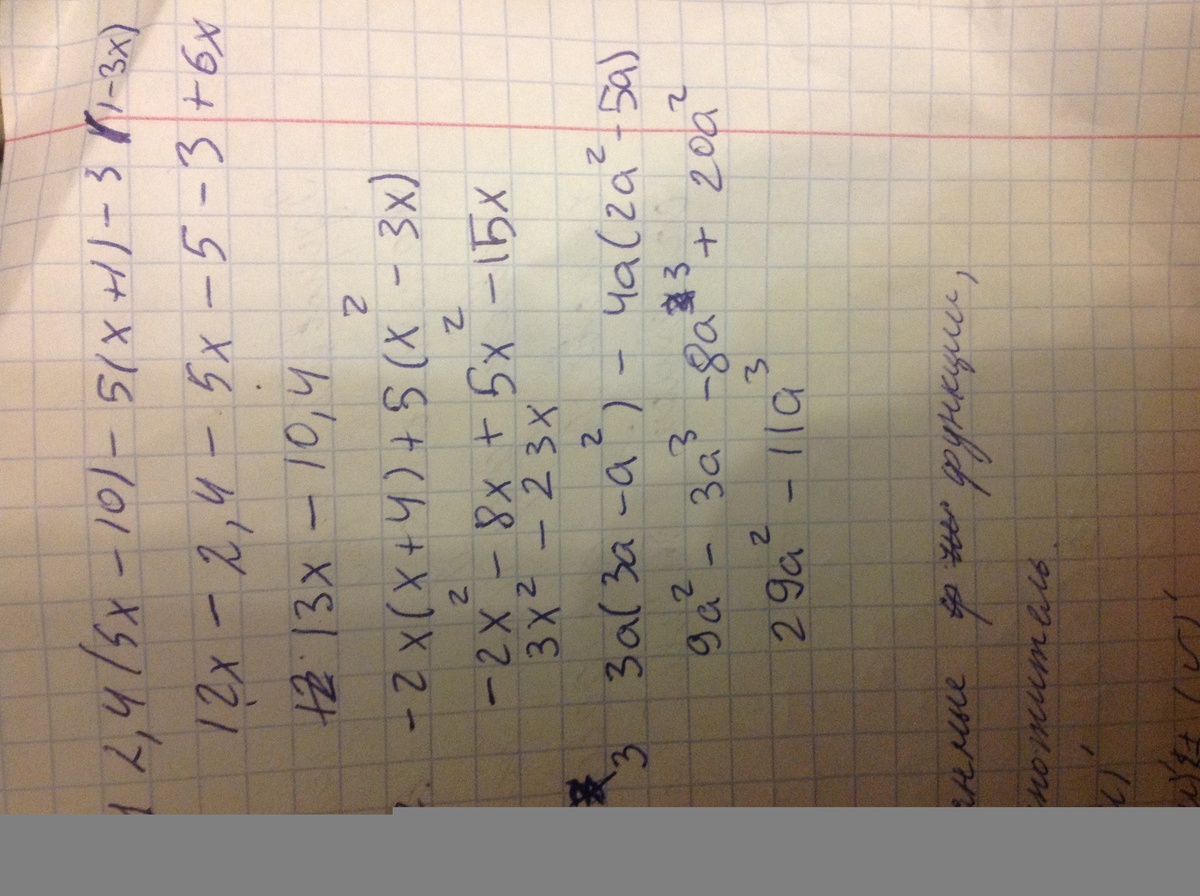 1 2,4(5x - 10) - 5(x + 1) - 3(1 - 3x)
12x - 2,4 - 5x - 5 - 3 + 6x
13x - 10,4
- 2x(x + 4) + 5(x² - 3x)
- 2x² - 8x + 5x² - 15x
3x² - 23x
3 3a(3a - a²) - 4a(2a² - 5a)
9a² - 3a³ - 8a³ + 20a²
29a² - 11a³
функции,